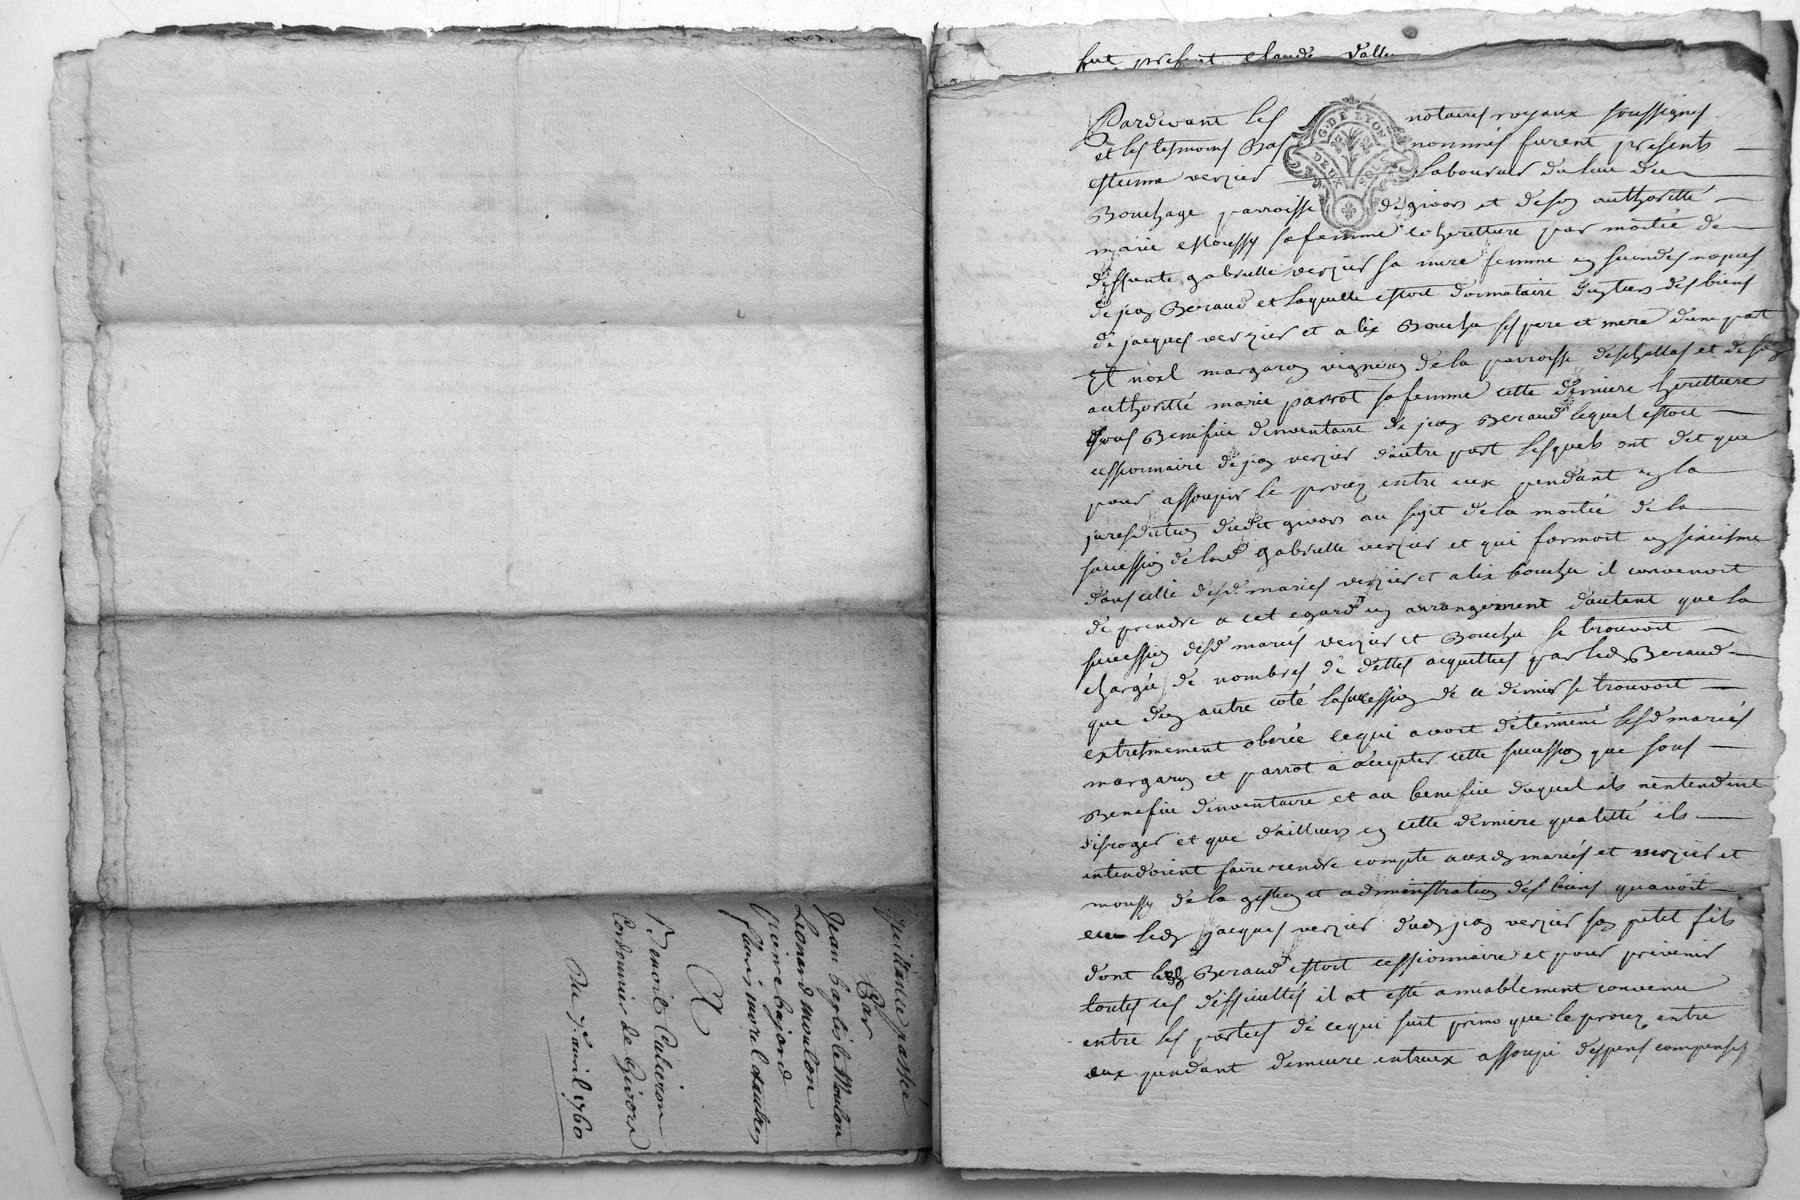 quittance passée
Par
Jean baptiste Moulon
Leonard moulon
pierre bajard
fleury morel & autres
A
Benoit Culieron
Cordonnier de Givors
Du 7.e avril 1760
fut present Claude
Pardevant les notaires royaux soussignes
et les tesmoins Bas nommés furent presents
estienne verzier laboureur du lieu du
Bouchage parroisse de givors et de son authoritté
marie moussy sa femme coherittiere par moitié de
deffunte gabrielle verzier sa mere femme en secondes nopces
de jean Beraud et laquelle estoit donnataire d'un tiers des biens
de jacques verzier et alix Bouchu ses pere et mere d'une part
Et noel margaron vigneron de la parroisse deschallas et de son
authoritté marie parrot sa femme cette derniere herittiere
sous Benefice d'inventaire de jean Beraud lequel estoit
cessionnaire de jean verzier d'autre part lesquels ont dit que
pour assoupir le procez entre eux pendant en la
juresdiction dudit givors au sujet de la moitié de la
succession de lad. gabrielle verzier et qui formoit un sixiesme
dans celle desd. mariés verzier et alix bouchu il convenoit
de prendre a cet egard un arrangement d'autent que la
succession desd. mariés verzier et Bouchu se trouvoit
chargée de nombres de dettes acquittees par led. Beraud
que d'un autre coté la succession de ce dernier se trouvoit
extresmement oberée ce qui avoit determiné lesd. mariés
margaron et parrot a accepter cette succession que sous
Benefice d'inventaire et au benefice duquel ils n'entendent
déroger et que d'ailleurs en cette derniere qualitté ils
entendoient faire rendre compte auxd. mariés et verzier et
moussy de la gestion et administration des biens qu'avoit
eue led. jacques verzier dud. jean verzier son petit fils
dont led. Beraud estoit cessionnaire et pour prevenir
toutes ces difficultés il at esté amiablement convenu
entre les parties de ce qui suit primo que le procez entre
eux pendant demeure entreux assoupi despens compensés